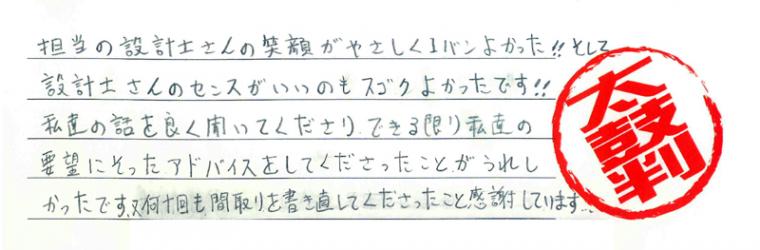 担当の設計士さんの笑顔がやさしく1バンよかった!!そして
設計士さんのセンスがいいのもスゴクよかったです!!
私達の話を良く聞いてくださり、できる限り私達の
要望にそったアドバイスをしてくださったことがうれし
かったです、又何十回も間取りを書き直してくださったこと感謝しています。
太鼓判